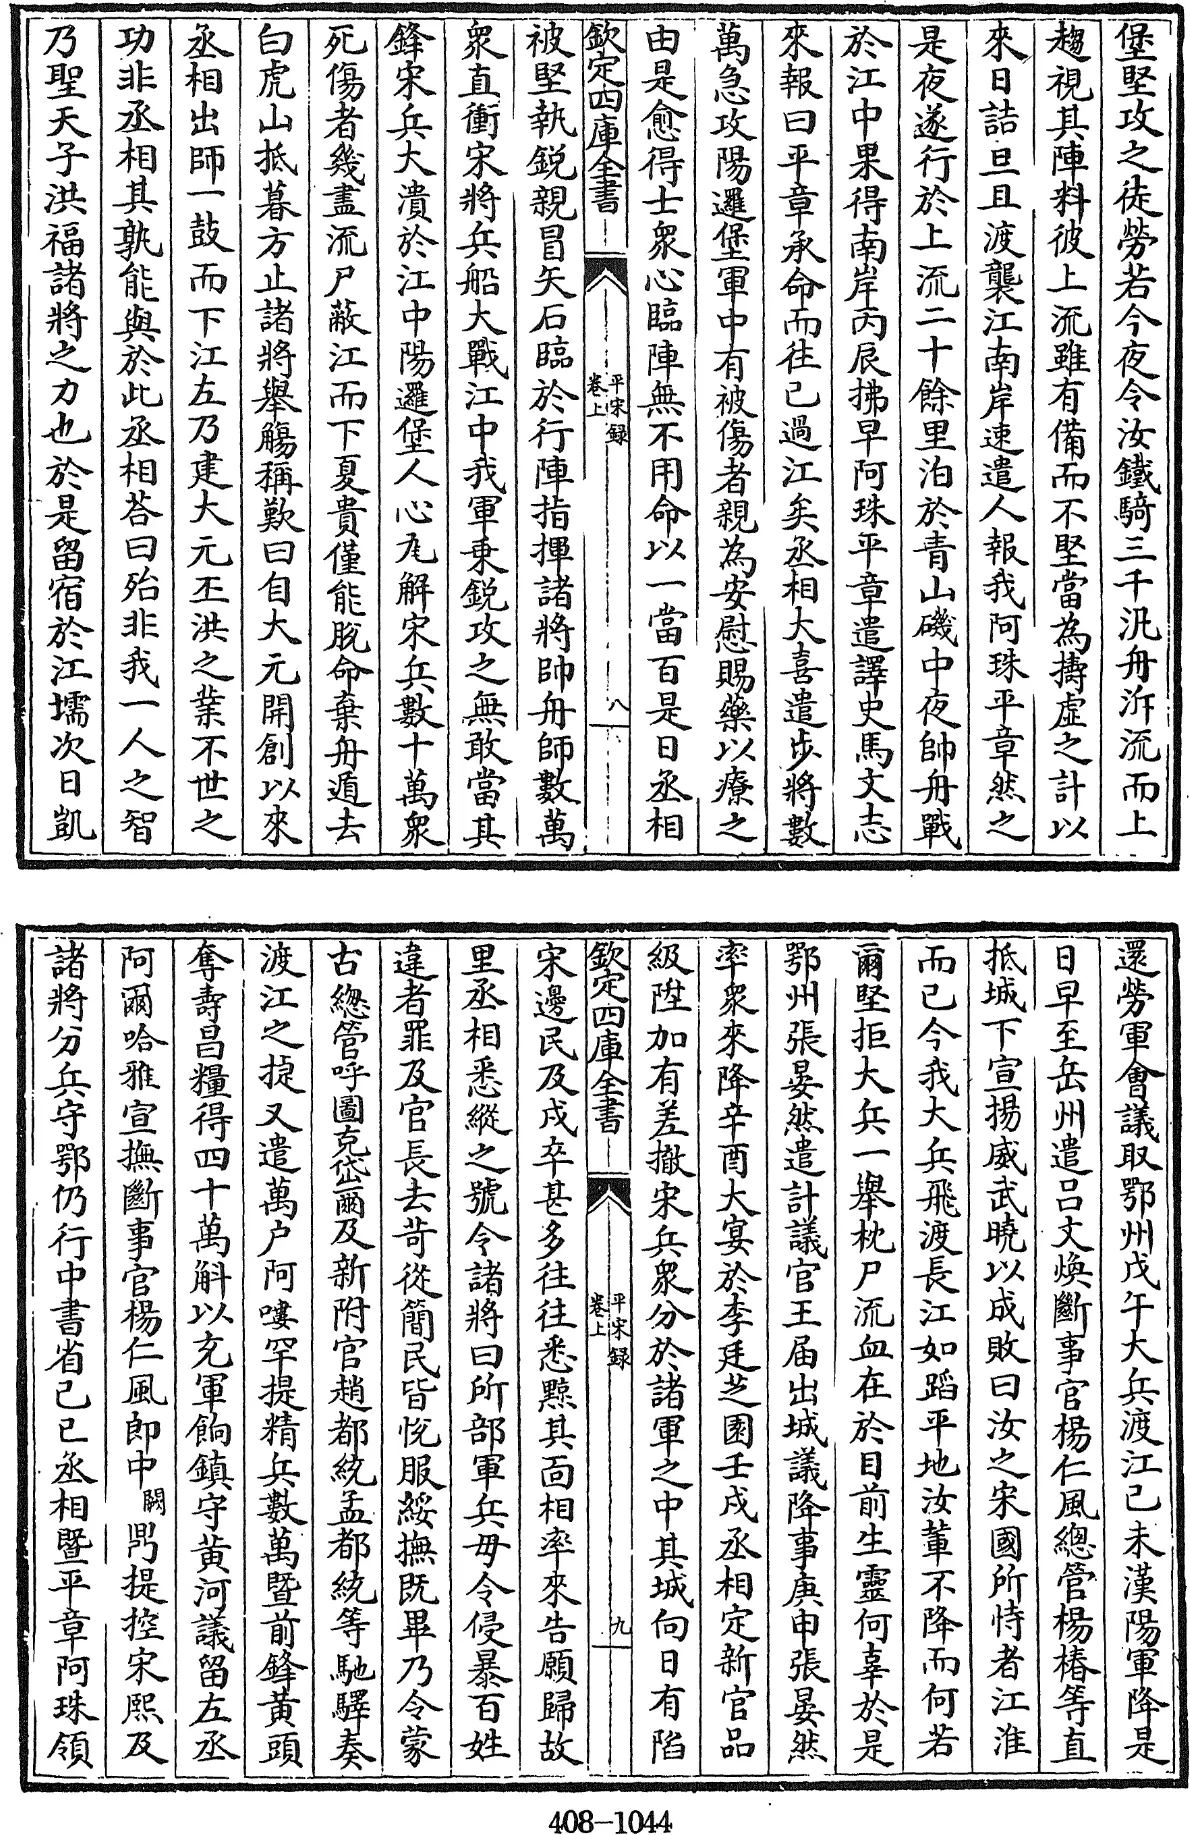 堡堅攻之徒勞若今夜令汝鐵騎三千汎舟泝流而上
趨視其陣料彼上流雖有備而不堅當為擣虛之計以
來日詰旦且渡襲江南岸速遣人報我阿珠平章然之
是夜遂行於上流二十餘里泊於青山磯中夜帥舟戰
於江中果得南岸丙辰拂早阿珠平章遣譯史馬文志
來報曰平章承命而往已過江矣丞相大喜遣步將數
萬急攻陽邏堡軍中有被傷者親為安慰賜藥以療之
由是愈得士衆心臨陣無不用命以一當百是日丞相
欽定四庫全書
平宋録
卷上
八
被堅執鋭親冒矢石臨於行陣指揮諸將帥舟師數萬
衆直衝宋將兵船大戰江中我軍乘鋭攻之無敢當其
鋒宋兵大潰於江中陽邏堡人心瓦解宋兵數十萬衆
死傷者幾盡流尸蔽江而下夏貴僅能脫命棄舟遁去
白虎山抵暮方止諸將舉觴稱歎曰自大元開創以來
丞相出師一鼓而下江左乃建大元丕洪之業不世之
功非丞相其孰能與於此丞相荅曰殆非我一人之智
乃聖天子洪福諸將之力也於是留宿於江壖次日凱
還勞軍會議取鄂州戊午大兵渡江己未漢陽軍降是
日早至岳州遣吕文焕斷事官楊仁風總管楊椿等直
抵城下宣揚威武曉以成敗曰汝之宋國所恃者江淮
而已今我大兵飛渡長江如蹈平地汝輩不降而何若
爾堅拒大兵一舉枕尸流血在於目前生靈何辜於是
鄂州張晏然遣計議官王届出城議降事庚申張晏然
率衆來降辛酉大宴於李廷芝園壬戌丞相定新官品
級陞加有差撤宋兵衆分於諸軍之中其城向日有陷
欽定四庫全書
平宋録
卷上
九
宋邊民及戍卒甚多往往悉黥其面相率來告願歸故
里丞相悉縱之號令諸將曰所部軍兵毋令侵暴百姓
違者罪及官長去苛從簡民皆悅服綏撫既畢乃令蒙
古總管呼圖克岱爾及新附官趙都統孟都統等馳驛奏
渡江之捷又遣萬户阿嘍罕提精兵數萬暨前鋒黄頭
奪壽昌糧得四十萬斛以充軍餉鎮守黄河議留左丞
阿爾哈雅宣撫斷事官楊仁風郎中闕鼎提控宋熙及
諸將分兵守鄂仍行中書省己巳丞相暨平章阿珠領
408-1044